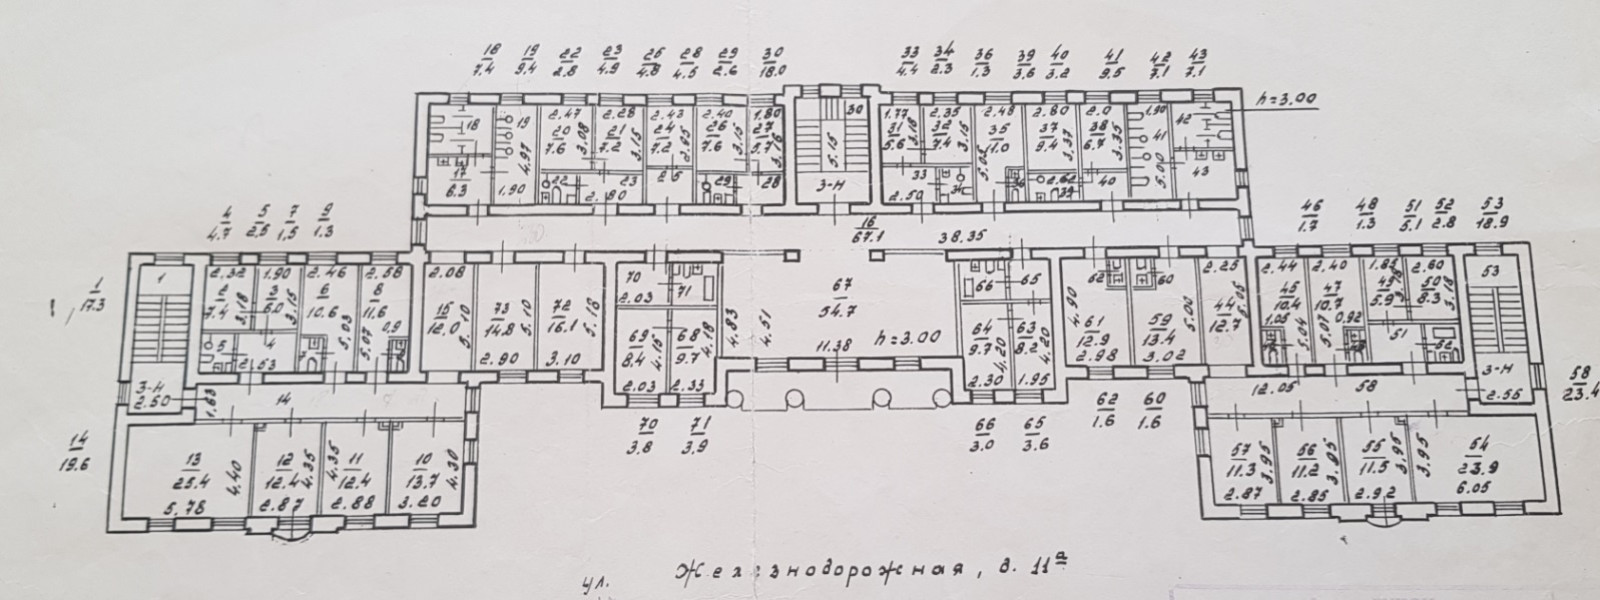 18 19 22 23 26 28 29 30 33 34 36 39 40 41 42 43
7.4 9.4 2.8 4.9 4.8 4.5 2.6 18.0 4.4 2.3 1.3 3.6 3.2 9.5 7.1 7.1
h=3.00
18 19 2.47 2.28 2.43 2.40 1.80 30 1.77 2.35 2.48 2.80 2.0 1.90 42
20 21 24 26 27 31 32 35 37 38 41
7.6 7.2 7.2 7.6 5.7 5.6 7.4 11.0 9.4 6.7
4.97 3.08 3.15 2.95 3.15 3.16 5.15 3.16 3.15 5.05 3.37 3.35 5.00
17 22 23 25 29 28 33 34 36 2.62 39 40 43
6.3 1.90 2.80 3-Н 2.50
4 5 7 9
4.7 2.5 1.5 1.3
46 48 51 52 53
1.7 1.3 5.1 2.8 18.9
16
67.1 38.35
1
17.3
1 2.32 1.90 2.46 2.58 2.08 70 71 67 66 65 62 60 2.25 2.44 2.40 1.85 2.60 53
2 3 6 8 15 73 72 2.03 54.7 44 45 47 49 50
7.4 6.0 10.6 11.6 12.0 14.8 16.1 12.7 10.4 10.7 5.9 8.3
3.18 3.15 5.03 5.07 5.10 5.10 5.18 4.83 4.51 4.90 5.00 5.05 5.04 5.07 3.18
69 68 64 63 61 59
8.4 9.7 9.7 8.2 12.9 13.4
4.15 4.18 4.20 4.20
5 4 0.9 1.05 0.92 51 52
2.53 2.90 3.10 11.38 h=3.00 2.98 3.02
3-Н 2.03 2.33 2.30 1.95 3-Н
2.50 1.63 14 12.05 58 2.55
58
23.4
70 71 66 65 62 60
3.8 3.9 3.0 3.6 1.6 1.6
14
19.6
13 12 11 10 57 56 55 54
25.4 12.4 12.4 13.7 11.3 11.2 11.5 23.9
4.40 4.35 4.35 4.30 3.95 3.95 3.95 3.95
5.78 2.87 2.88 3.20 2.87 2.85 2.92 6.05
ул. Железнодорожная, д. 11а